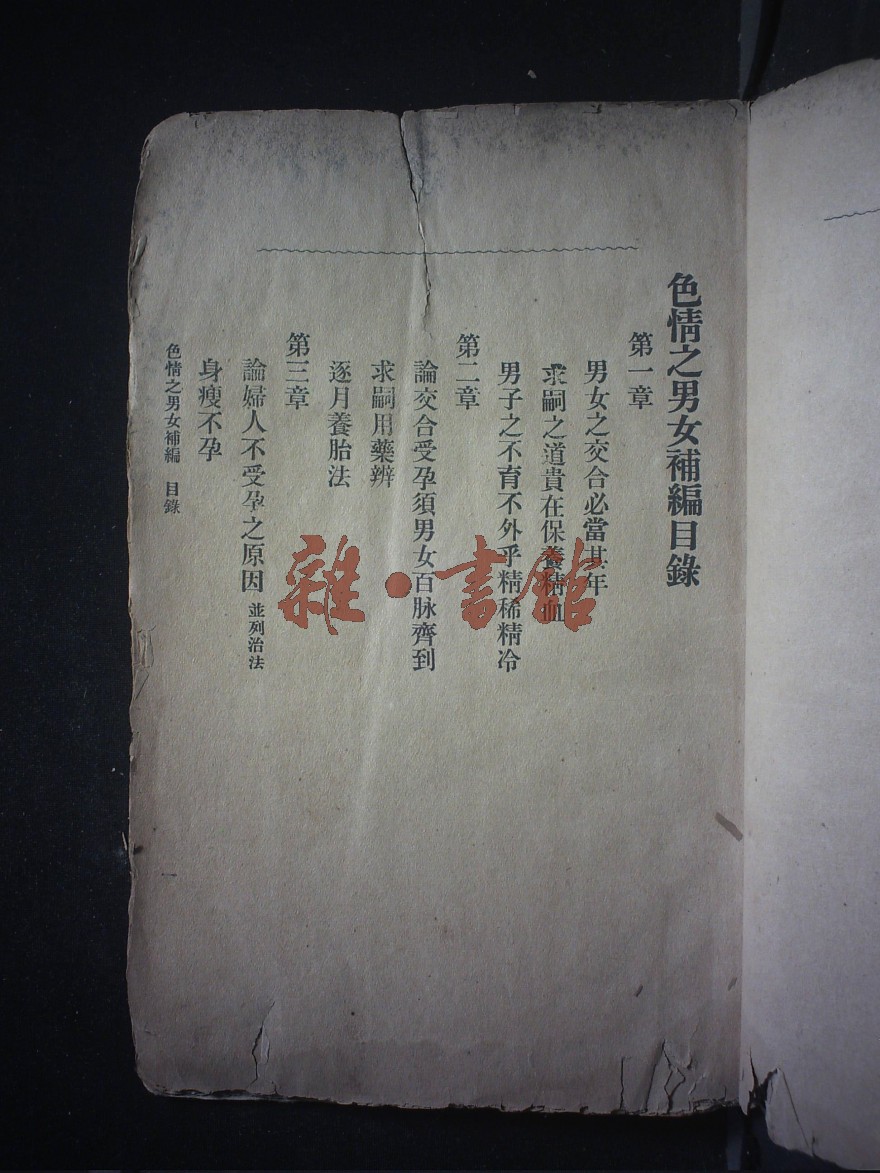 色情之男女補編目錄
第一章
男女之交合必當其年
求嗣之道貴在保養精血
男子之不育不外乎精稀精冷
第二章
論交合受孕須男女百脉齊到
求嗣用藥辨
逐月養胎法
第三章
論婦人不受孕之原因 並列治法
身瘦不孕
色情之男女補編 目錄
雜·書館